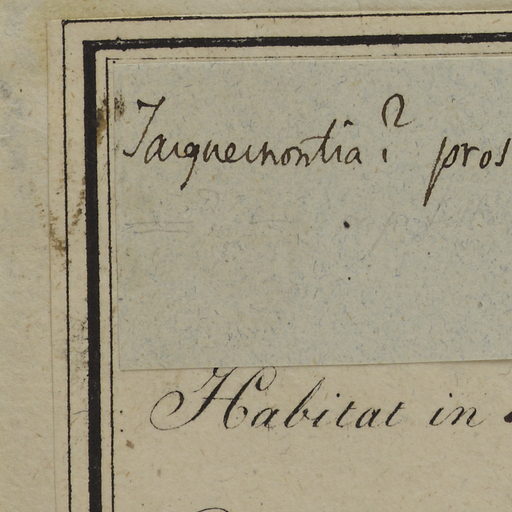 Jacquemontia? pros
Habitat in